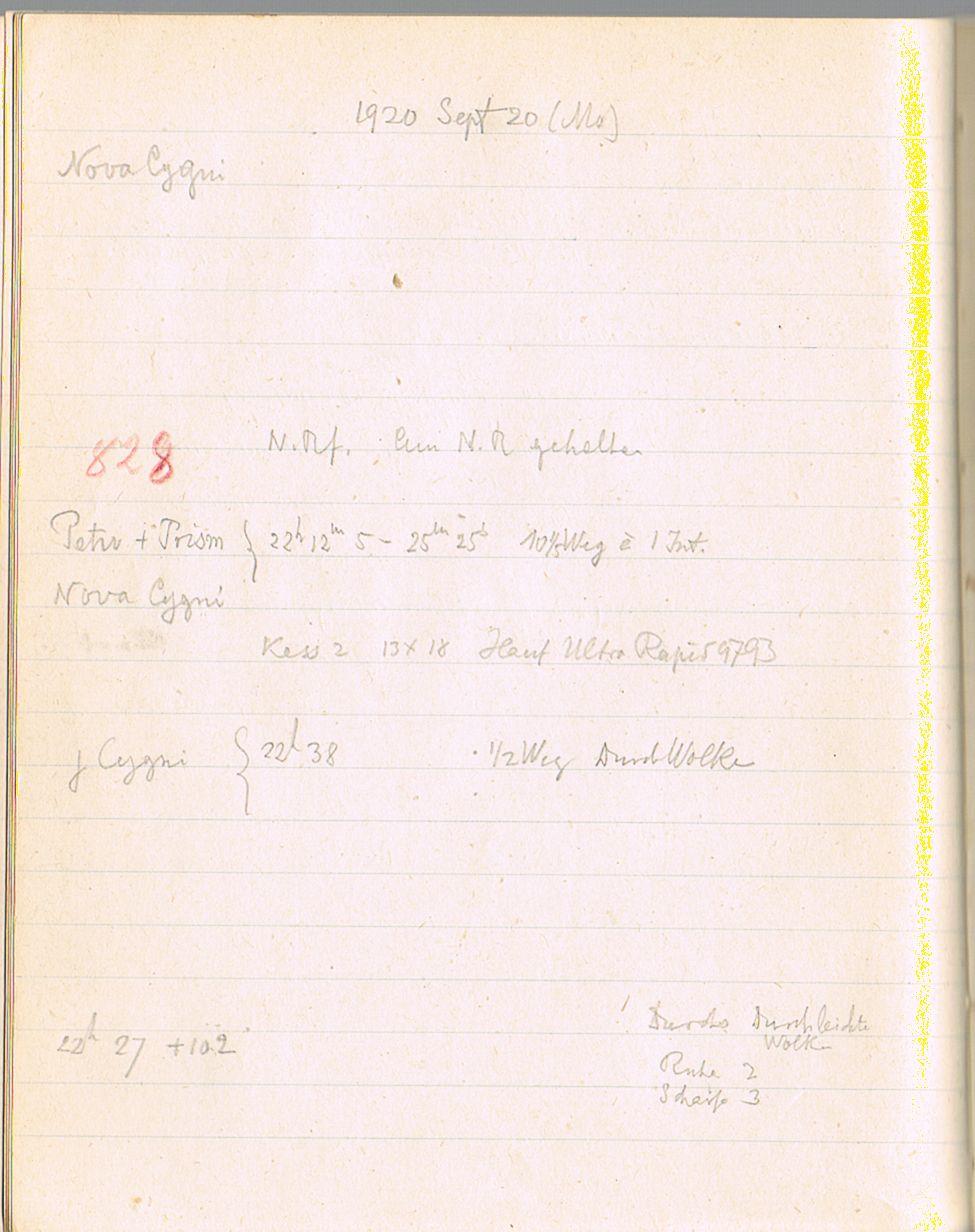 1920 Sept 20 (Mo)
Nova Cygni
828 N. Rf. N. R gehalten
Petz + Prism } 22h 12m 5 - 25m 25s 10½ Weg à 1 Int.
Nova Cygni
Kass 2 13 x 18 Hauf Ultra Rapid 9793
γ Cygni { 22h 38 1/2 Weg Durch Wolke
22h 27 +10.2
Durchs Durch leichte
Wolke
Ruhe 2
Schärfe 3